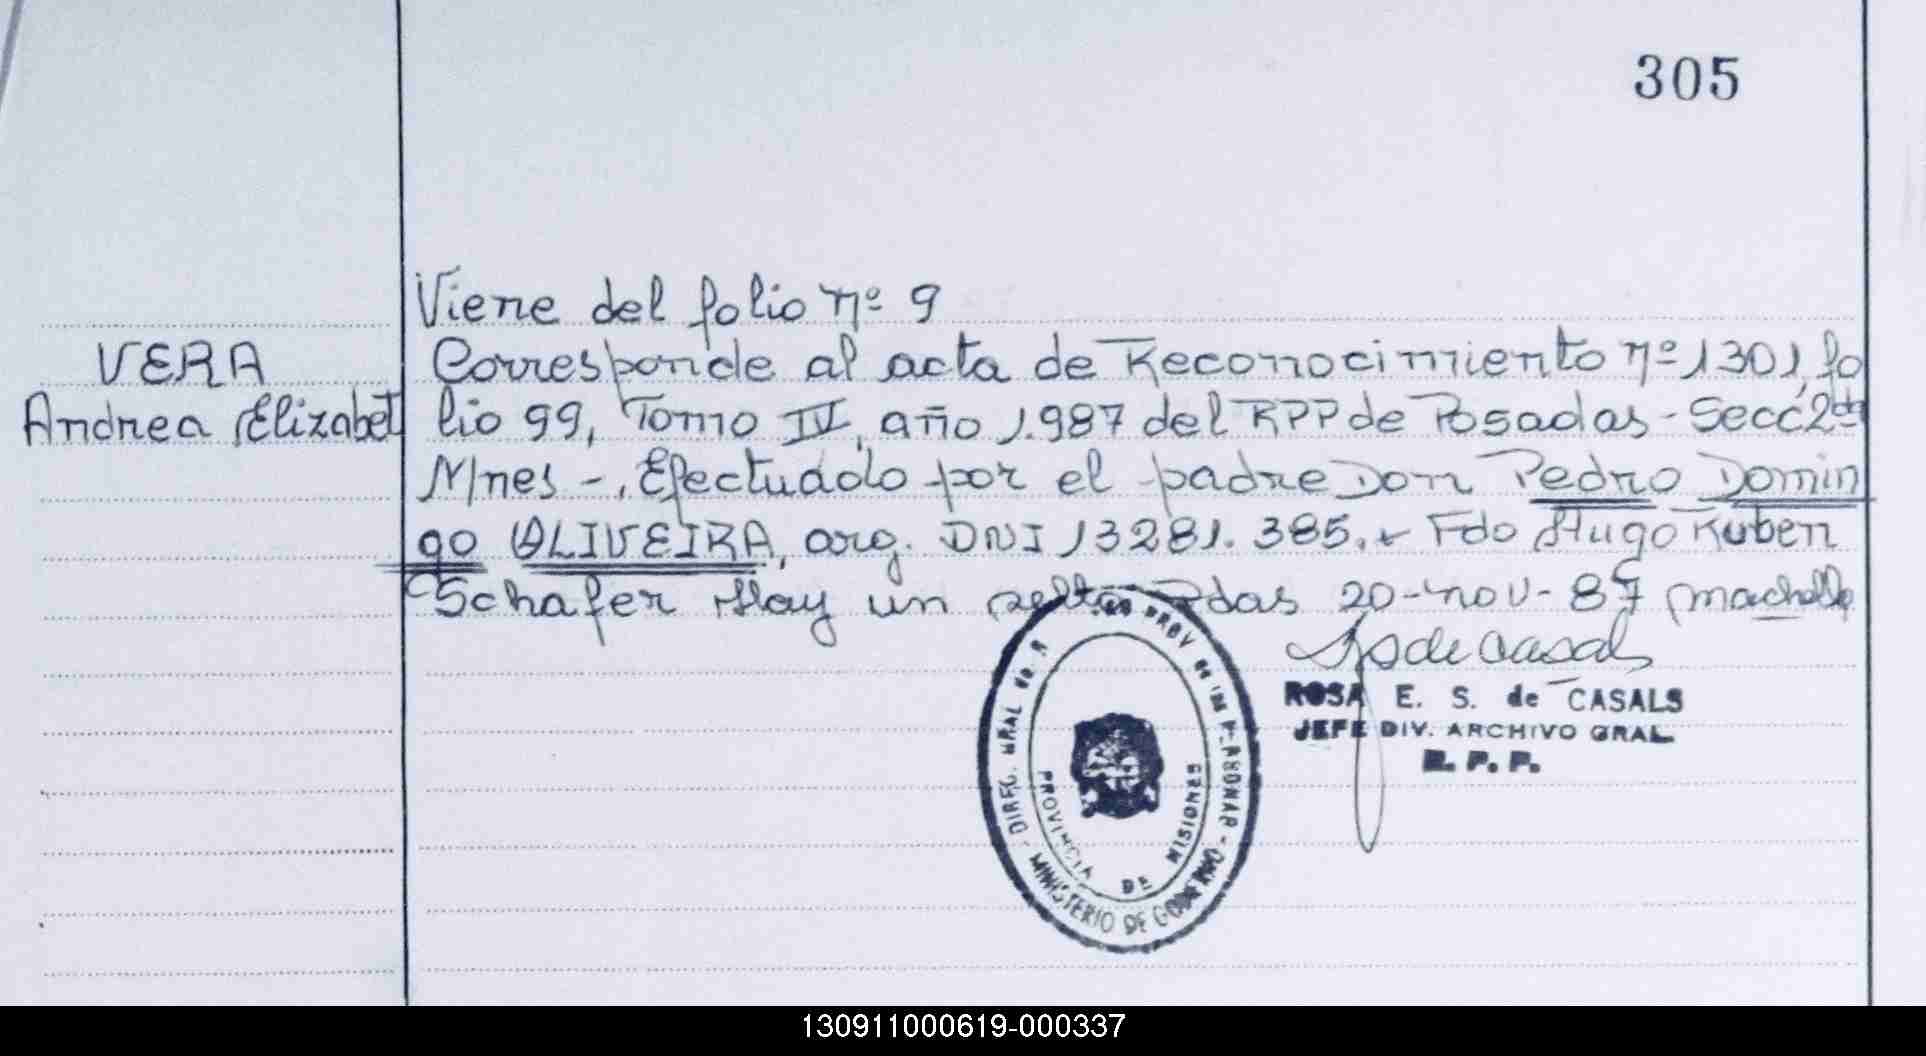 305
Viene del folio nº 9
VERA
Corresponde al acta de Reconocimiento nº 1301, fo
Andrea Elizabet
lio 99, Tomo IV, año 1.987 del RPP de Posadas - Secc 2da
M/nes -. Efectuado por el padre Don Pedro Domin
go OLIVEIRA, arg. DNI 13281.385. Fdo Hugo Ruben
Schafer Hay un sello Pdas 20-nov-87
ROSA E. S. de CASALS
JEFE DIV. ARCHIVO GRAL
R. P. P.
PROVINCIA DE MISIONES
MINISTERIO DE GOBIERNO
130911000619-000337